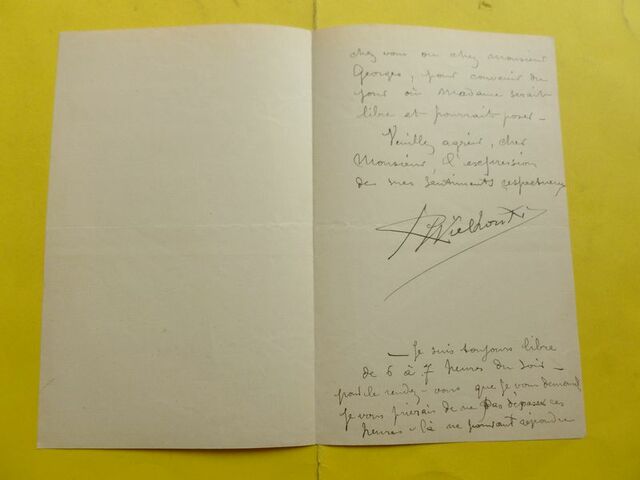 chez vous ou chez Monsieur
Georges, pour convenir du
jour où Madame serait
libre et pourrait poser -
Veuillez agréer, cher
Monsieur, l'expression
de mes sentiments respectueux
— Je suis toujours libre
de 6 à 7 heures du soir -
pour le rendez-vous que je vous demande
Je vous prierais de ne pas dépasser ces
heures-là ne pouvant répondre